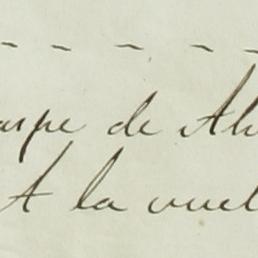 aspe de Al
A la vuel